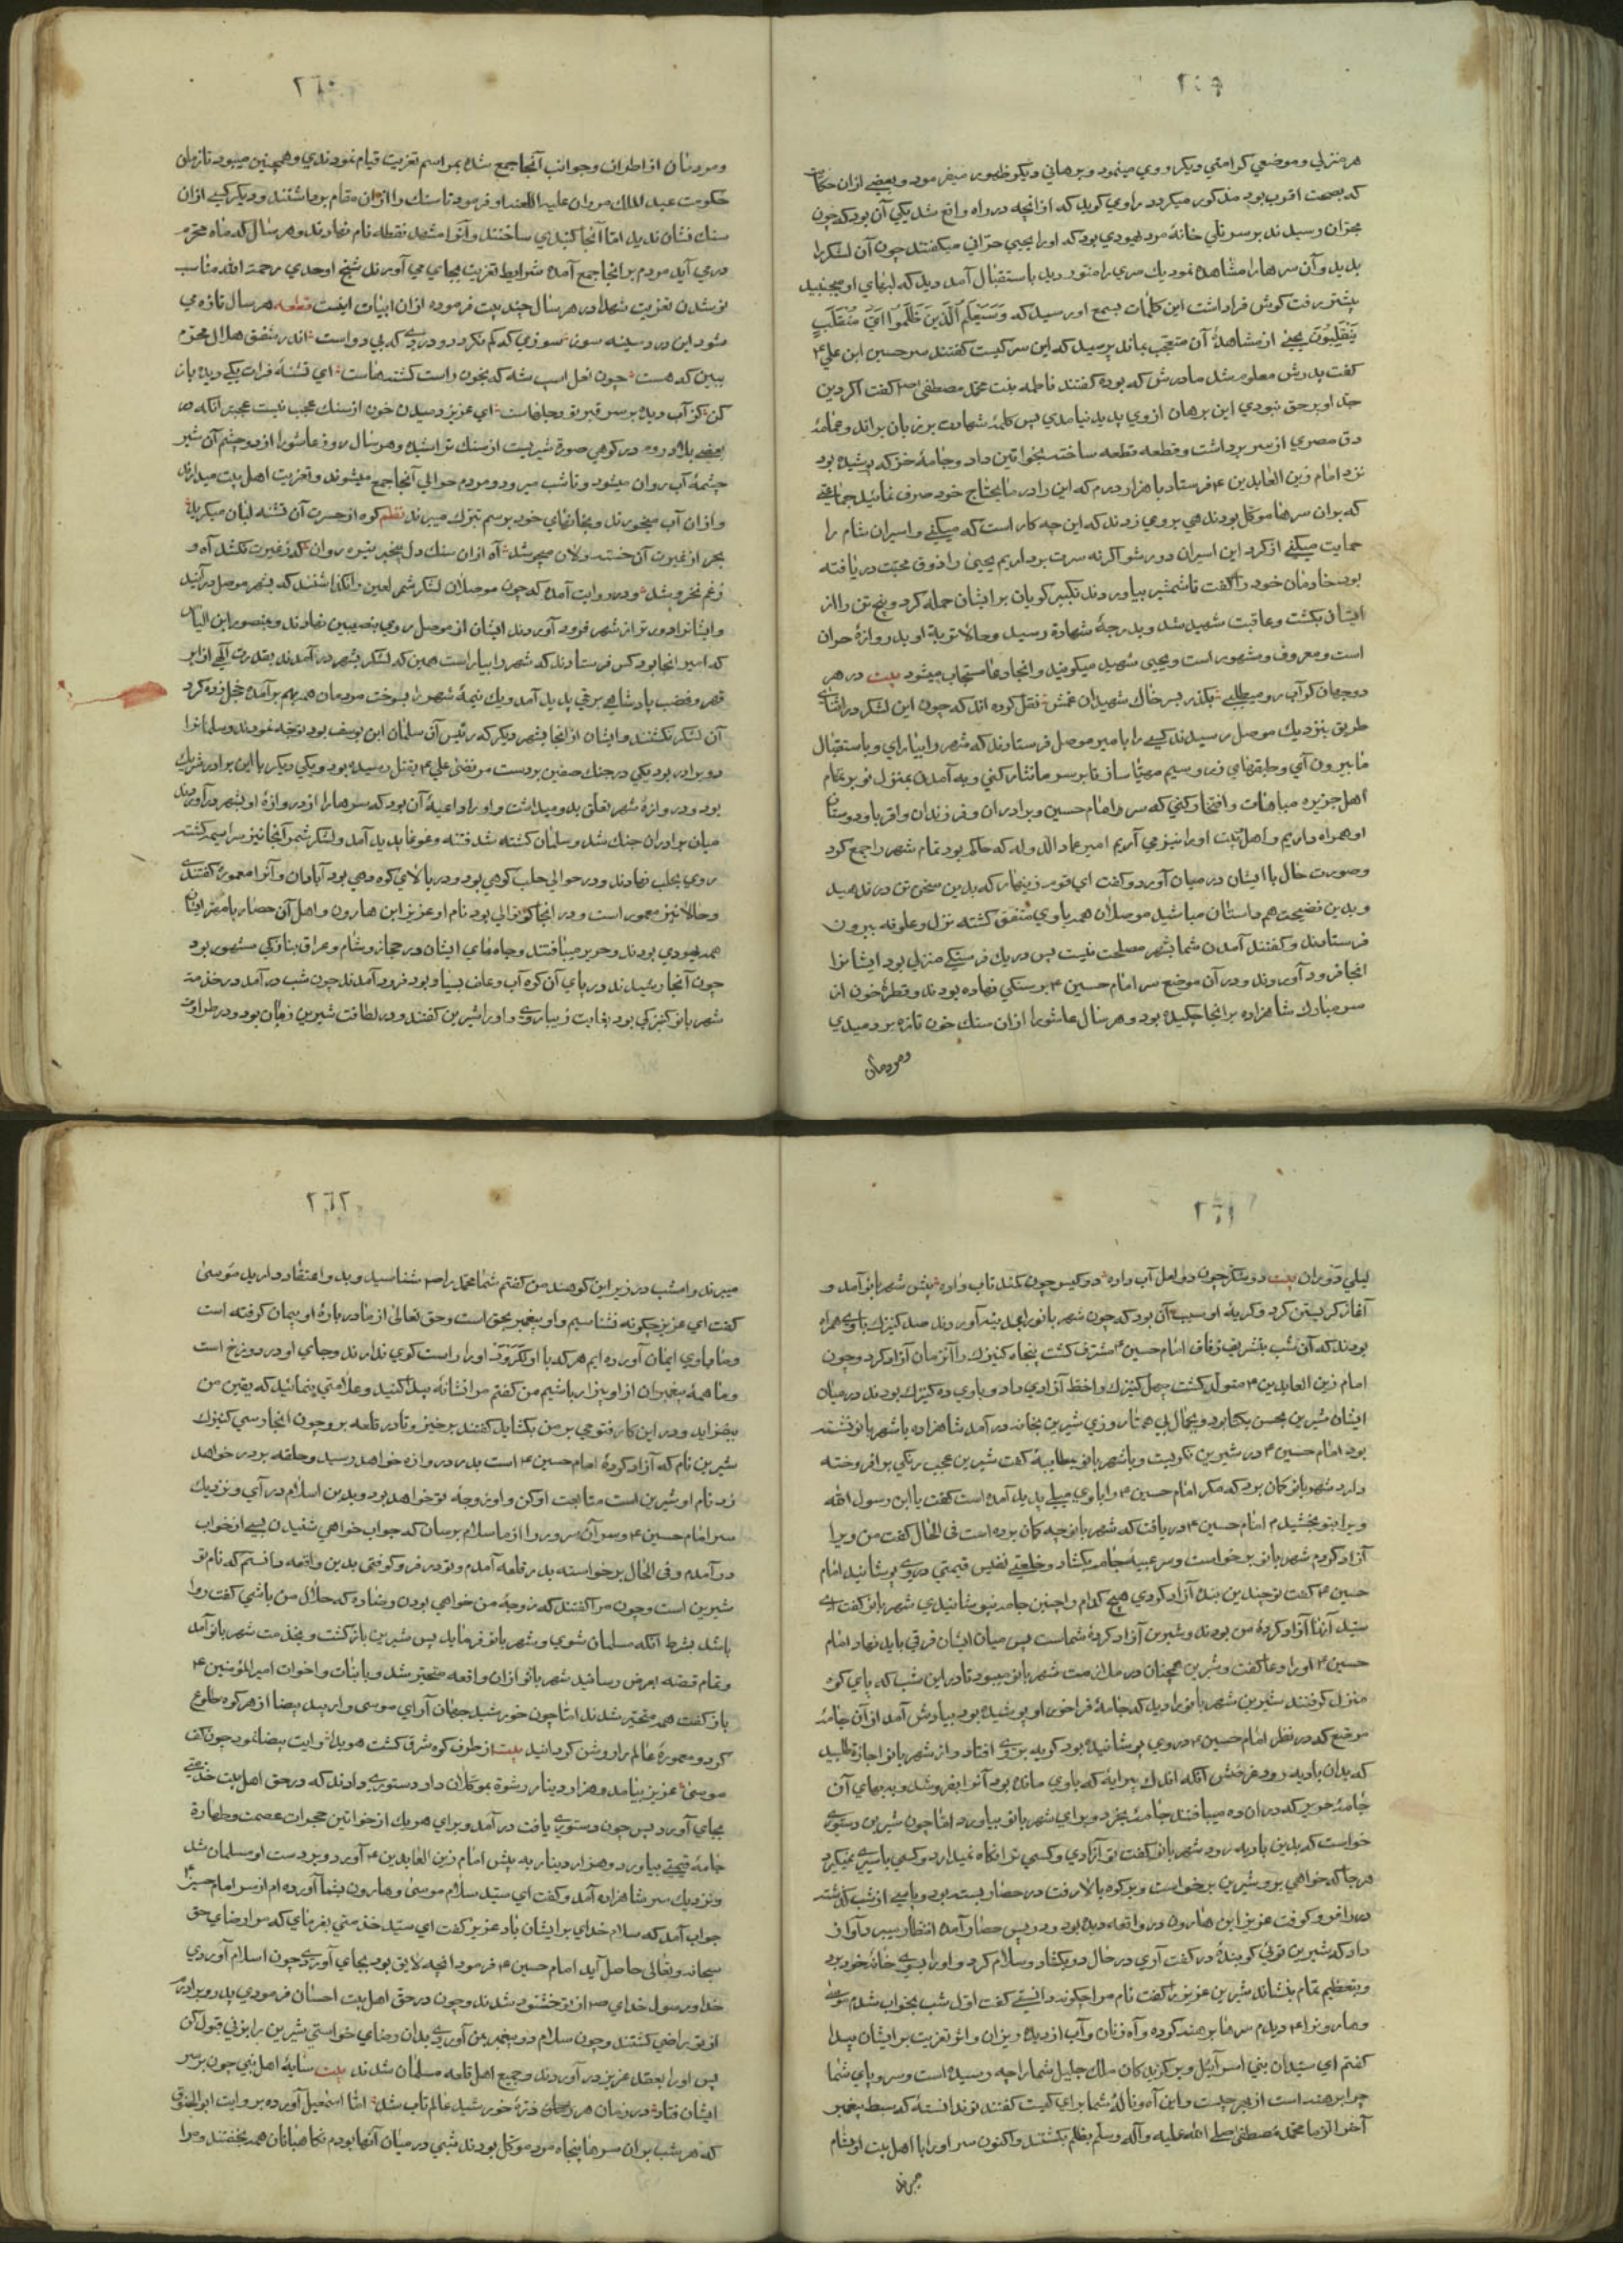 ٢٥٩
هر منزلي و موضعي كرامتي ديكر روي مينمود و برهاني ديكر ظهور ميفرمود و بعضي ازان حكايات
كه بصحت اقرب بود مذكور ميكردد راوي كويد كه از انچه در راه واقع شد يكي آن بود كه چون
بحرّان رسيدند بر سر تلي خانهٔ مرد يهودي بود كه اورا يحيي حرّاني ميكفتند چون آن لشكر را
بديد و آن سرهارا مشاهده نمود يك سري را منوّر ديد باستقبال آمد ديد كه لبهاي او ميجنبيد
پيشتر رفت كوش فرا داشت اين كلمات بسمع او رسيد كه وَسَيَعلَم الَّذينَ ظَلَموا اَيَّ مُنْقَلَبٍ
يَنْقَلِبُونَ يحيي از مشاهدهٔ آن متعجّب بماند پرسيد كه اين سر كيست كفتند سر حسين ابن علي ۴
كفت پدرش معلوم شد مادرش كه بوده كفتند فاطمه بنت محمّد مصطفى صم كفت اكر دين
جدّ او بر حق نبودي اين برهان از وي پديد نيامدي پس كلمهٔ شهادت بر زبان براند و عمامهٔ
دق مصري از سر برداشت و قطعه قطعه ساخته بخواتين داد و جامهٔ خز كه پوشيده بود
نزد امام زين العابدين ۴ فرستاد با هزار درم كه اين را در ما يحتاج خود صرف نمائيد جماعتي
كه بران سرها موكّل بودند هي بر وي زدند كه اين چه كار است كه ميكني و اسيران شام را
حمايت ميكني از كرد اين اسيران دور شو اكرنه سرت برداريم يحيى را ذوق محبّت دريافته
بود خادمان خود را كفت تا شمشير بياوردند تكبير كويان بر ايشان حمله كرد و پنج تن را از
ايشان بكشت و عاقبت شهيد شد و بدرجهٔ شهادة رسيد و حالا تربهٔ او بدروازهٔ حران
است و معروف و مشهور است و يحيى شهيد ميكويند و انجا دعا مستجاب ميشود بيت در هر
دو جهان كر آب رو ميطلبي بكذر بسر خاك شهيدان غمش نقل كرده اند كه چون اين لشكر در اثناي
طريق بنزديك موصل رسيدند كسي را بامير موصل فرستادند كه شهر را بياراي و باستقبال
ما بيرون آي و طبقهاي زر و سيم مهيّا ساز تا بر سر ما نثار كني و به آمدن بمنزل تو بر تمام
اهل جزيره مباهات و افتخار كني كه سر امام حسين و برادران و فرزندان و اقربا و دوستان
او همراه داريم و اهل بيت اورا نيز مي آريم امير عماد الدوله كه حاكم بود تمام شهر را جمع كرد
و صورت حال با ايشان در ميان آورد و كفت اي قوم زينهار كه بدين سخن تن در ندهيد
و بدين فضيحت هم داستان مباشيد موصليان همه با وي متفق كشته نزل و علوفه بيرون
فرستادند و كفتند آمدن شما بشهر مصلحت نيست پس در يك فرسنكي منزلي بود ايشانرا
انجا فرود آوردند و در آن موضع سر امام حسين ۴ بر سنكي نهاده بودند و قطرهٔ خون از
سر مبارك شاهزاده بر انجا چكيده بود و هر سال عاشورا ازان سنك خون تازه بر دميدي
و مردمان
٢٦٠
و مردمان از اطراف و جوانب آنجا جمع شده بمراسم تعزيت قيام نمودندي و همچنين ميبود تا زمان
حكومت عبد الملك مروان عليه اللعنه او فرمود تا سنك را ازان مقام برداشتند و ديكر كسي ازان
سنك نشان نديد امّا آنجا كنبدي ساختند و آنرا مشهد نقطه نام نهادند و هر سال كه ماه محرم
درمي آيد مردم برانجا جمع آمده شرايط تعزيت بجاي مي آورند شيخ اوحدي رحمة الله مناسب
نو شدن تعزيت شهدا در هر سال چند بيت فرموده ازان ابيات اينست قطعه هر سال تازه مي
شود اين درد سينه سوز سوزي كه كم نكردد و دردي كه بي دواست اندر شفق هلال محرّم
ببين كه هست چون نعل اسب شه كه بخون راست كشته هاست اي تشنهٔ فرات يكي ديده باز
كن كز آب ديده بر سر قبر تو دجلهاست اي عزيز دميدن خون از سنك عجب نيست عجبتر آنكه در
بعضي بلاد روم در كوهي صورة شيريست از سنك تراشيده و هر سال روز عاشورا از دو چشم آن شير
چشمهٔ آب روان ميشود و تا شب ميرود و مردم حوالي آنجا جمع ميشوند و تعزيت اهل بيت ميدارند
و ازان آب ميخورند و بخانهاي خود برسم تبرّك ميبرند نظم كوه از حسرت آن تشنه لبان ميكريد
بحر از غيرت آن خسته دلان ميجوشد آه ازان سنك دل بيخبر تيره روان كه ز غيرت نكشد آه و
ز غم نخروشد و در روايت آمده كه چون موصليان لشكر شمر لعين را نكذاشتند كه بشهر موصل درآيند
و ايشانرا دورتر از شهر فرود آوردند ايشان از موصل روي بنصيبين نهادند و منصور ابن الياس
كه امير انجا بود كس فرستادند كه شهر را بياراست همين كه لشكر بشهر در آمدند بقدرت الهي از ابر
قهر و غضب پادشاهي برقي پديد آمد و يك نيمهٔ شهر را بسوخت مردمان همه بهم برآمده خجل زده كرد
آن لشكر نكشتند و ايشان از انجا بشهر ديكر كه رئيس آن سلمان ابن يوسف بود توجّه نمودند و سلمانرا
دو برادر بود يكي در جنك صفين بر دست مرتضى علي ۴ بقتل رسيده بود و يكي ديكر با اين برادر شريك
بود و در دروازهٔ شهر تعلق بدو ميداشت و اورا داعيهٔ آن بود كه سرهارا از دروازهٔ او بشهر درآورند
ميان برادران جنك شد و سلمان كشته شد فتنه و غوغا پديد آمد و لشكر شمر آنجا نيز سراسيمه كشته
روي بحلب نهادند و در حوالي حلب كوهي بود و در بالاي كوه دهي بود آبادان و آنرا معموره كفتندي
و حالا نيز معمور است و در انجا كوتوالي بود نام او عزيز ابن هارون و اهل آن حصار با مهتر ايشان
همه يهودي بودند و حرير ميبافتند و جامهاي ايشان در حجاز و شام و عراق بنازكي مشهور بود
چون آنجا رسيدند در پاي آن كوه آب و علف بسيار بود فرود آمدند چون شب در آمد در خدمت
شهر بانو كنيزكي بود بغايت زيباروي و اورا شيرين كفتند و در لطافت شيرين زمان بود و در طراوت
٢٦١
ليلي دوران بيت دو شكر چون دو لعل آب داده دو كيسو چون كمند تاب داده پيش شهر بانو آمد و
آغاز كريستن كرد و كريهٔ او سبب آن بود كه چون شهر بانورا بمدينه آوردند صد كنيزك با وي همراه
بودند كه آن شب بتشريف زفاف امام حسين ۴ مشرف كشت پنجاه كنيزك را آنزمان آزاد كرد و چون
امام زين العابدين ۴ متولّد كشت چهل كنيزك را خط آزادي داد و با وي ده كنيزك بودند در ميان
ايشان شيرين بحسن يكتا بود و بجمال بي همتا روزي شيرين بخانه درآمد شاهزاده با شهر بانو نشسته
بود امام حسين ۴ در شيرين نكريست و با شهر بانو بمطايبه كفت شيرين عجب رنكي بر افروخته
دارد شهر بانو كمان برد كه مكر امام حسين ۴ را با وي ميلي پديد آمده است كفت يا ابن رسول الله
ويرا بتو بخشيدم امام حسين ۴ دريافت كه شهر بانو چه كمان برده است فى الحال كفت من ويرا
آزاد كردم شهر بانو برخواست و سر عيبهٔ جامه بكشاد و خلعتي نفيس قيمتي در وي پوشانيد امام
حسين ۴ كفت تو چندين بنده آزاد كردي هيچ كدام را چنين جامه نپوشانيدي شهر بانو كفت اي
سيّد آنها آزاد كردهٔ من بودند و شيرين آزاد كردهٔ شماست پس ميان ايشان فرقي بايد نهاد امام
حسين ۴ اورا دعا كفت و شيرين همچنان در ملازمت شهر بانو ميبود تا درين شب كه پاي كوه
منزل كرفتند شيرين شهر بانورا ديد كه جامهٔ فراخور او پوشيده بود بيادش آمد ازان جامهٔ
مرصّع كه در نظر امام حسين ۴ در وي پوشانيده بود كريه بر وي افتاد و از شهر بانو اجازة طلبيد
كه بدان باديه رود غرضش آنكه اندك پيرايه كه با وي مانده بود آنرا بفروشد و ببهاي آن
جامهٔ حرير كه دران ده ميبافتند جامهٔ بخرد و براي شهر بانو بياورد امّا چون شيرين دستوري
خواست كه بدين باديه رود شهر بانو كفت تو آزادي و كسي ترا نكاه نميدارد و كسي باسيري نميكيرد
هرجا كه خواهي برو شيرين برخواست و بر كوه بالا رفت در حصار بسته بود و پاسي از شب كذشته
در را فرو كوفت عزيز ابن هارون در واقعه ديده بود و در پس حصار آمده انتظار ميبرد آواز
داد كه شيرين توئي كوينده در كفت آري در حال در بكشاد و سلام كرد و اورا بسوي خانهٔ خود برد
و بتعظيم تمام بنشاند شيرين عزيز را كفت نام مرا چكونه دانستي كفت اوّل شب بخواب شدم موسى
و هارونرا ۴ ديدم سرها برهنه كرده و آه زنان و آب از ديده ريزان و اثر تعزيت بر ايشان پيدا
كفتم اي سيّدان بني اسرآئيل و بركزيدكان ملك جليل شمارا چه رسيده است و سر و پاي شما
چرا برهنه است از بهر چيست و اين آه و نالهٔ شما براي كيست كفتند تو ندانسته كه سبط پيغمبر
آخر الزمان محمّد مصطفى صلى الله عليه و آله و سلم بظلم بكشتند و اكنون سر اورا با اهل بيت او بشام
ميبرند
٢٦٢
ميبرند و امشب در زير اين كوهند من كفتم شما محمّد را صم شناسيد و بدو اعتقاد داريد موسى
كفت اي عزيز چكونه نشناسيم و او پيغمبر بحق است و حق تعالى از ما در بارهٔ او پيمان كرفته است
و ما باوي ايمان آورده ايم هر كه با او نكرود اورا راست كوي ندارند و جاي او در دوزخ است
و ما همهٔ پيغمبران ازاو بيزار باشيم من كفتم مرا نشانهٔ پيدا كنيد و علامتي بنمائيد كه يقين من
بيفزايد و در اين كار فتوحي بر من بكشايد كفتند برخيز و تا در قلعه برو چون انجا رسي كنيزك
شيرين نام كه آزاد كردهٔ امام حسين ۴ است بدر دروازه خواهد رسيد و حلقه بر در خواهد
زد نام او شيرين است متابعت او كن و او زوجهٔ تو خواهد بود و بدين اسلام درآي و نزديك
سر امام حسين ۴ و سر آن سرور را از ما سلام برسان كه جواب خواهي شنيدن پس از خواب
درآمدم و فى الحال برخواسته بدر قلعه آمدم و تو در فرو كوفتي بدين واقعه دانستم كه نام تو
شيرين است و چون مرا كفتند كه زوجهٔ من خواهي بودن رضا ده كه حلال من باشي كفت روا
باشد بشرط انكه مسلمان شوي و شهر بانو فرمايد پس شيرين بازكشت و بخدمت شهر بانو آمد
و تمام قصّه بعرض رسانيد شهر بانو ازان واقعه متحيّر شد و با بنات و اخوات امير المؤمنين ۴
بازكفت همه متحيّر شدند امّا چون خورشيد جهان آراي موسى وار يد بيضا از هر كوه طلوع
كرد و معمورهٔ عالم را روشن كردانيد بيت از طرف كوه شرق كشت هويدا رايت بيضا نمود چون كف
موسى عزيز بيامد و هزار دينار رشوة بموكّلان داد دستوري دادند كه در حق اهل بيت خدمتي
بجاي آورد پس چون دستوري يافت درآمد و براي هر يك از خواتين حجرات عصمت و طهارة
جامهٔ قيمتي بياورد و هزار دينار به پيش امام زين العابدين ۴ آورد و بر دست او مسلمان شد
و نزديك سر شاهزاده آمد و كفت اي سيّد سلام موسى و هارون بشما آورده ام از سر امام حسين ۴
جواب آمد كه سلام خداي بر ايشان باد عزيز كفت اي سيّد خدمتي بفرماي كه مرا رضاي حق
سبحانه و تعالى حاصل آيد امام حسين ۴ فرمود انچه لايق بود بجاي آوردي چون اسلام آوردي
خدا و رسول خداي صم از تو خشنود شدند و چون در حق اهل بيت احسان فرمودي پدر و برادرم
از تو راضي كشتند و چون سلام دو پيغمبر بمن آوردي بدان رضاي خواستي شيرين را بزني قبول كن
پس اورا بعقد عزيز در آوردند و جميع اهل قلعه مسلمان شدند بيت سايهٔ اهل نبي چون بر سر
ايشان فتاد در زمان هر ذرّهٔ خورشيد عالم تاب شد امّا اسمعيل آورده بروايت ابو الخنوق
كه هر شب بران سرها پنجاه مرد موكّل بودند شبي در ميان آنها بودم نكاهبانان همه بخفتند و مرا